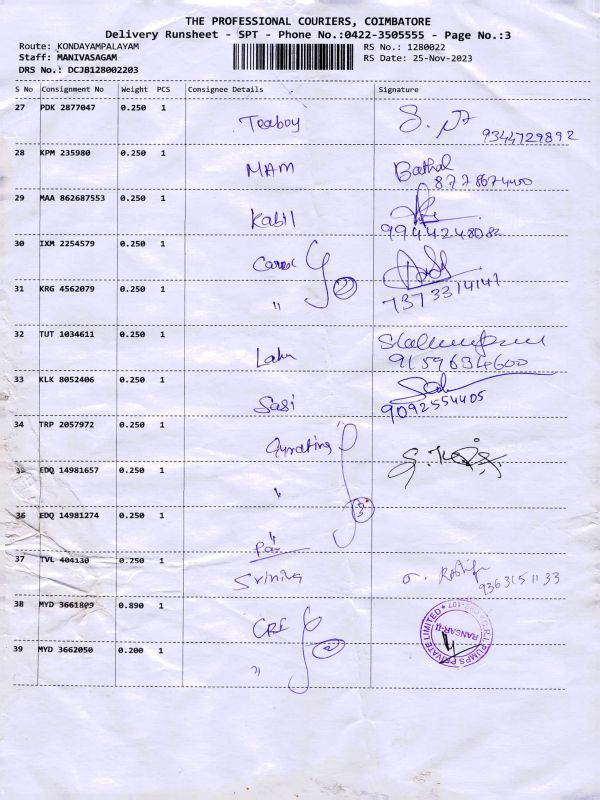 THE PROFESSIONAL COURIERS, COIMBATORE
Delivery Runsheet - SPT - Phone No.:0422-3505555 - Page No.:3
Route: KONDAYAMPALAYAM RS No.: 1280022
Staff: MANIVASAGAM RS Date: 25-Nov-2023
DRS No.: DCJB128002203
S No Consignment No Weight PCS Consignee Details Signature
27 PDK 2877047 0.250 1 Teaboy
9344729892
28 KPM 235980 0.250 1 MAM
29 MAA 862687553 0.250 1 Kabil
9944248082
30 IXM 2254579 0.250 1
31 KRG 4562079 0.250 1 " 2
7373314141
32 TUT 1034611 0.250 1
9159634600
33 KLK 8052406 0.250 1 Sasi
9092554405
34 TRP 2057972 0.250 1
35 EDQ 14981657 0.250 1 "
36 EDQ 14981274 0.250 1 " 3
37 TVL 404130 0.250 1
9363151133
38 MYD 3661809 0.890 1 CRI
39 MYD 3662050 0.200 1 " 2
PUMPS PRIVATE LIMITED